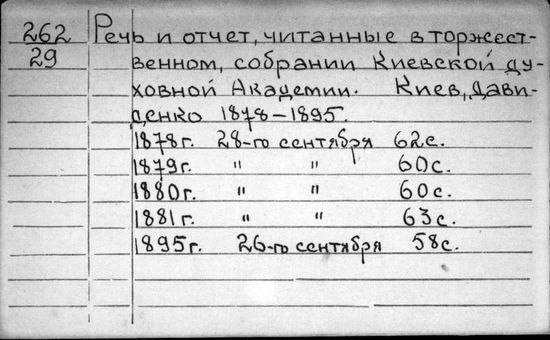 262 Речь и отчет, читанные в торжест-
29 венном, собрании Киевской ду-
ховной Академии. Киев, Дави-
денко 1878-1895.
1878г. 28-го сентября 62с.
1879г. " " 60с.
1880г. " " 60с.
1881г. " " 63с.
1895г. 26-го сентября 58с.